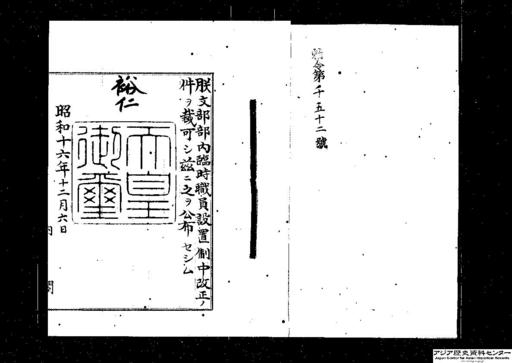 勅令第千五十二號
朕文部部内臨時職員設置制中改正ノ
件ヲ裁可シ茲ニ之ヲ公布セシム
裕仁
天皇御璽
昭和十六年十二月六日
内閣
アジア歴史資料センター
Japan Center for Asian Historical Records